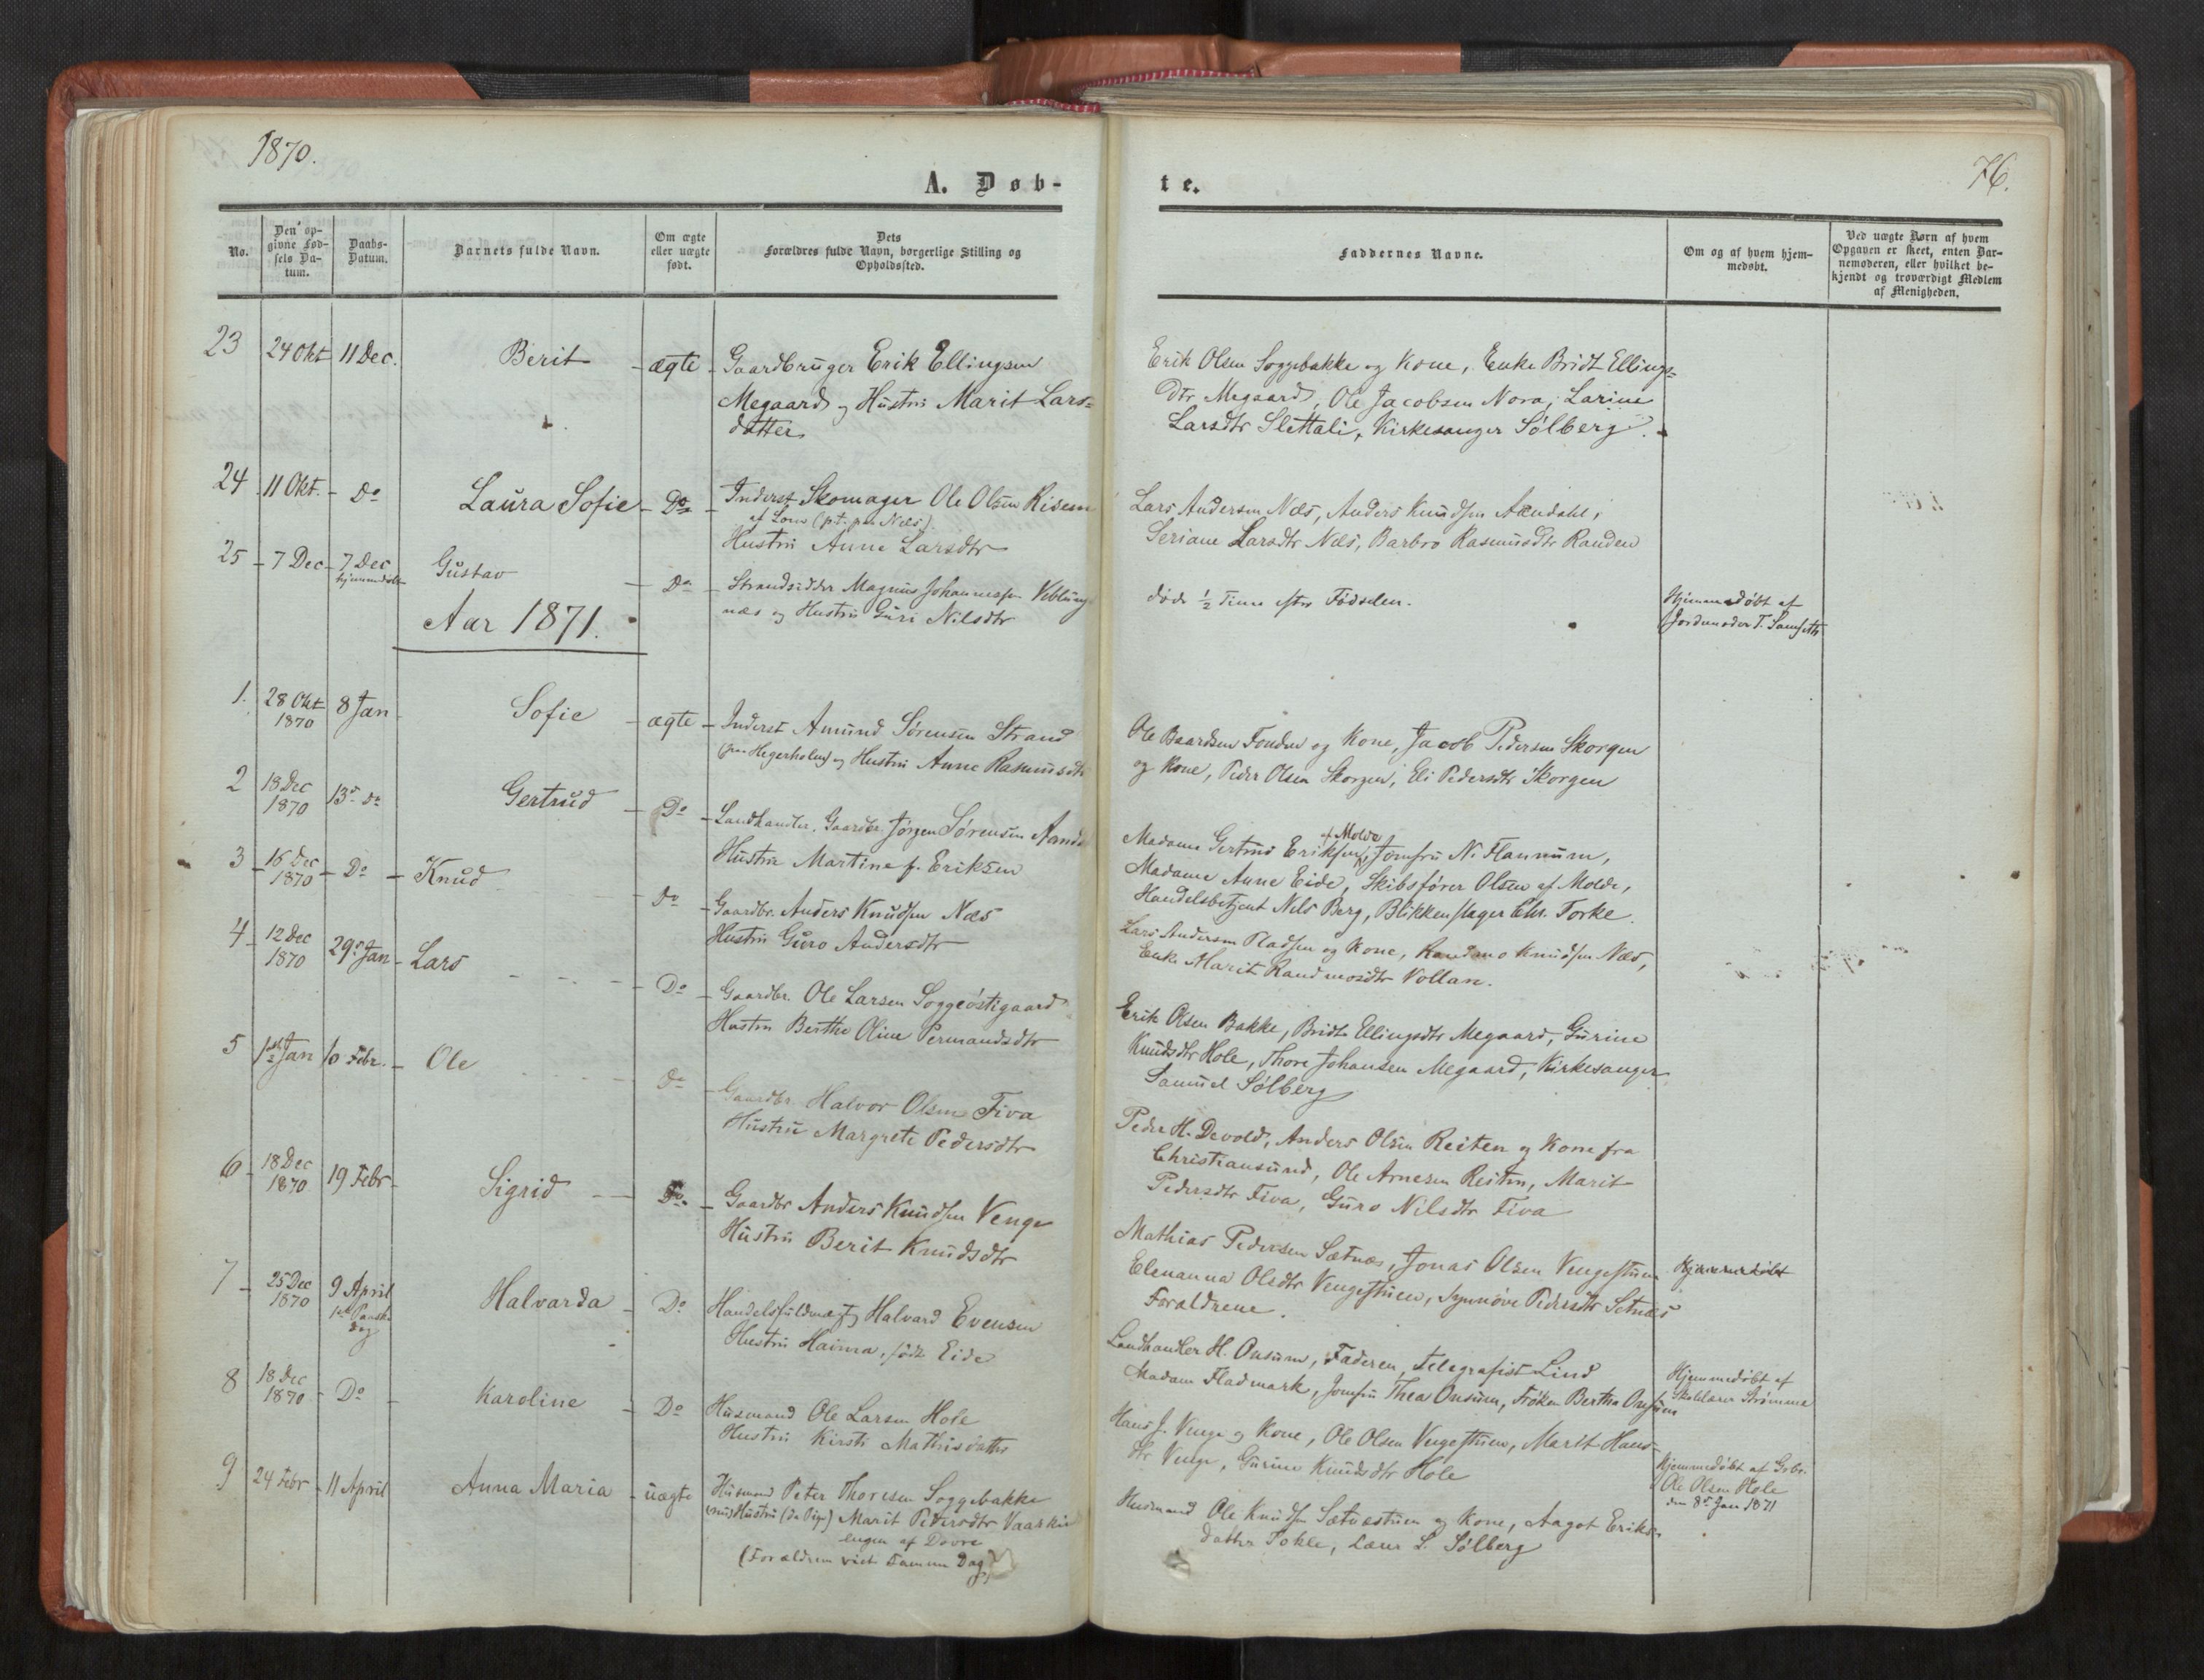 1870.
76.
A. Døb-
te.
No.
Den op-
givne Fød-
sels Da-
tum.
Daabs-
Datum.
Barnets fulde Navn.
Om ægte
eller uægte
født.
Dets
Forældres fulde Navn, borgerlige Stilling og
Opholdssted.
Faddernes Navne.
Om og af hvem hjem-
medøbt.
Ved uægte Børn af hvem
Opgaven er skeet, enten Bar-
nemoderen, eller hvilket be-
kjendt og troværdigt Medlem
af Menigheden.
23 24 Okt 11 Dec. Berit ægte Gaardbruger Erik Ellingsen
Megaard og Hustru Marit Lars=
datter
Erik Olsen Soggebakke og Kone, Enke Bridt Ellings=
dtr Megaard, Ole Jacobsen Nora, Larine
Larsdtr Slettali, Kirkesanger Sølberg.
24 11 Okt. Do Laura Sofie Do Inderst Skomager Ole Olsen Risem
af Lom (p.t. paa Næs)
Hustru Anne Larsdtr
Lars Andersen Næs, Anders Knudsen Aandahl,
Seriane Larsdtr Næs, Barbro Rasmusdtr Randen
25 7 Dec 7 Dec
hjemmedøbt
Gustav Do Strandsidder Magnus Johannessen Veblung
næs og Hustru Guri Nilsdtr
døde ½ Time efter Fødselen.
Hjemmedøbt af
Jordmoder T. Samseth
Aar 1871.
1. 28 Okt
1870
8 Jan Sofie ægte Inderst Amund Sørensen Strand
(paa Hegerholm) og Hustru Anne Rasmusdtr
Ole Baardsen Fonden og Kone, Jacob Pedersen Skorgen
og Kone, Peder Olsen Skorgen, Eli Pedersdtr Skorgen
2 18 Dec
1870
13de do Gertrud Do Landhandler, Gaardbr. Jørgen Sørensen
Hustru Martine f. Eriksen
Madame Gertrud Eriksen af Molde, Jomfru N. Flannum,
Madame Anne Eide, Skibsfører Olsen af Molde,
Handelsbetjent Nils Berg, Blikkenslager Chr. Torke.
3 16 Dec
1870
Do Knud do Gaardbr. Anders Knudsen Næs
Hustru Guro Andersdtr
Lars Andersen Pladsen og Kone, Randmo Knudsen Næs,
Enke Marit Randmosdtr Vollan.
4 12 Dec
1870
29de Jan Lars Do Gaardbr. Ole Larsen Soggeøstigaard
Hustru Berthe Oline Permandsdtr
Erik Olsen Bakke, Bridt Ellingsdtr Megaard, Gurine
Knudsdtr Hole, Thore Johansen Megaard, Kirkesanger
Samuel Sølberg
5 1ste Jan Febr. Ole do Gaardbr. Halvor Olsen Fiva
Hustru Margrete Pedersdtr
Peder H. Devold, Anders Olsen Reiten og Kone fra
Christiansund, Ole Arnesen Reiten, Marit
Pedersdtr Fiva, Guro Nilsdtr Fiva
6 18 Dec
1870
19 Febr Sigrid Do Gaardbr Anders Knudsen Venge
Hustru Berit Knudsdtr
Mathias Pedersen Sætnæs, Jonas Olsen Vengestuen
Elenanna Olsdtr Vengestuen, Synnøve Pedersdtr Setnæs
Forældrene.
Hjemmedøbt
7 25 Dec
1870
9 April
1ste Paaske
dag
Halvarda Do Handelsfuldmægtig Halvard Evensen
Hustru Hanna, født Eide
Landhandler H. Onsum, Faderen, Telegrafist Lind
Madam Fladmark, Jomfru Thea Onsum, Frøken Bertha Onsum
Hjemmedøbt af
Skolelærer Strømme
8 18 Dec
1870
Do Karoline Do Husmand Ole Larsen Hole
Hustru Kirsti Mathisdatter
Hans J. Venge og Kone, Ole Olsen Vengestuen, Marit Hans-
dtr Venge, Gurine Knudsdtr Hole
Hjemmedøbt af Grbr.
Ole Olsen Hole
den 8de Jan 1871
9 24 Febr 11 April Anna Maria uægte Husmand Peter Thoresen Soggebakke
(nu) Hustru (da Pige) Marit Pedersdtr
engen af Dovre
(Forældrene viet samme Dag)
Husmand Ole Knudsen Sætnestuen og Kone, Aagot Eriks-
datter Tokle, Lærer S. Sølberg